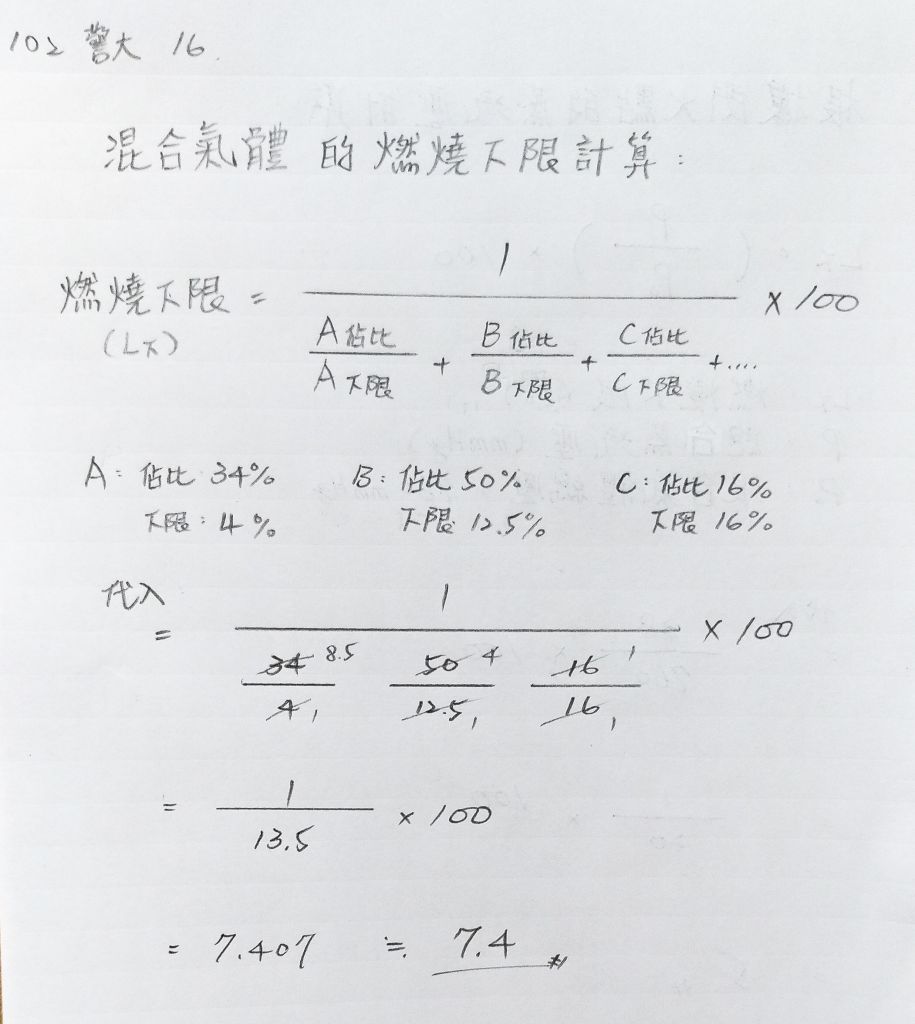 102 警大 16.
混合氣體的燃燒下限計算：
燃燒下限(L下) = 1 / (A佔比/A下限 + B佔比/B下限 + C佔比/C下限 + ....) × 100
A：佔比 34% B：佔比 50% C：佔比 16%
下限：4% 下限：12.5% 下限 16%
代入
= 1 / (34/4 50/12.5 16/16) × 100
8.5 4 1
1 1 1
= 1 / 13.5 × 100
= 7.407 ≒ 7.4 #